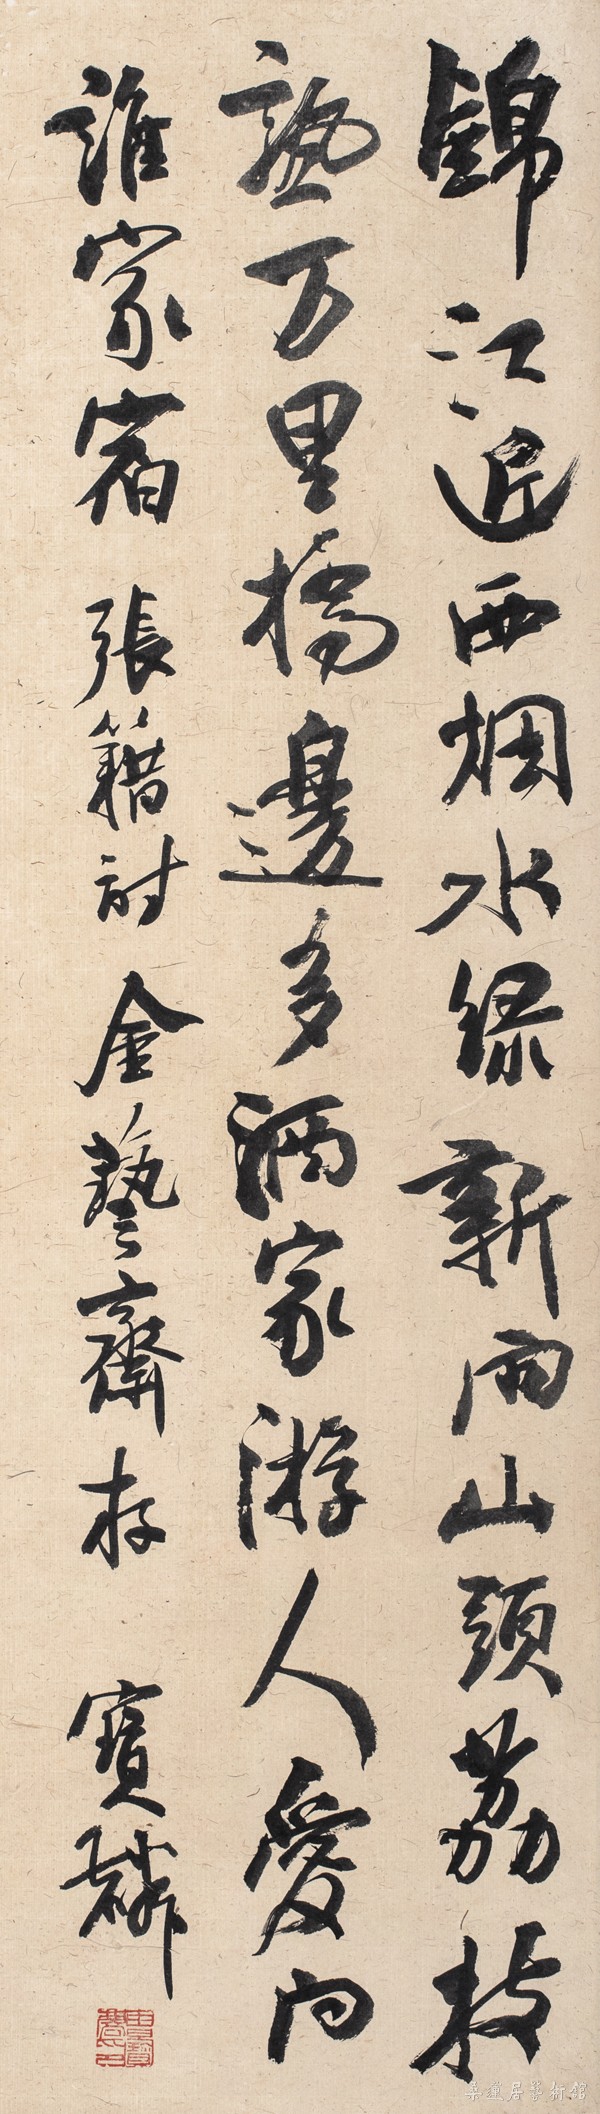 錦江近西烟水綠新雨山頭荔枝
熟万里橋邊多酒家游人愛向
誰家宿 張籍詩 金藝齋存 寶麟